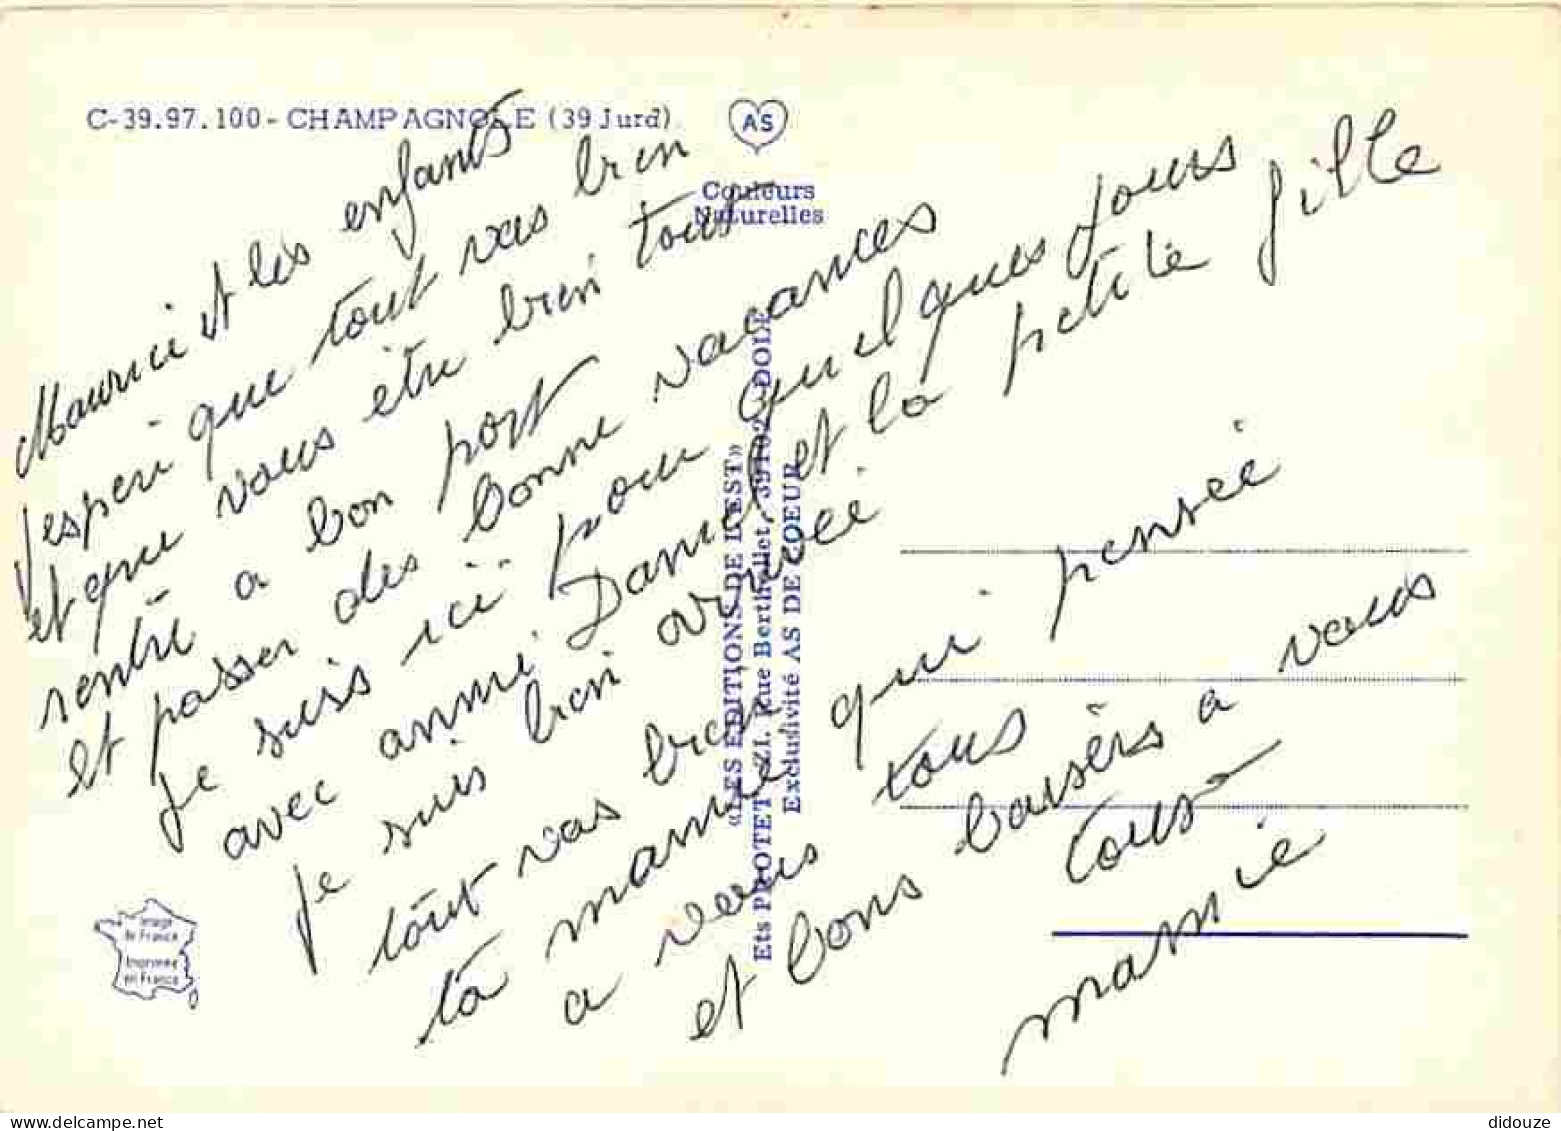 C-39.97.100 - CHAMPAGNOLE (39 Jura)
AS
Couleurs
Naturelles
Maurice et les enfants
j'esperé que tout vas bien
et que vous étre bien tous
rentré a bon port
et passer des bonne vacances
je suis ici pour quelques jours
avec annie Daniel et la petite fille
je suis bien arrivée
tout vas bien
ta mamie qui pensée
a vous tous
et bons baisérs a vous
tous
mamie
«LES EDITIONS DE L'EST»
Ets PROTET ZI. Rue Berthollet, 39102 DOLE
Exclusivité AS DE COEUR
Image
de France
Imprimée
en France
delcampe.net
didouze